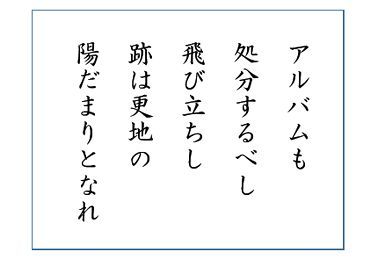 アルバムも
処分するべし
飛び立ちし
跡は更地の
陽だまりとなれ